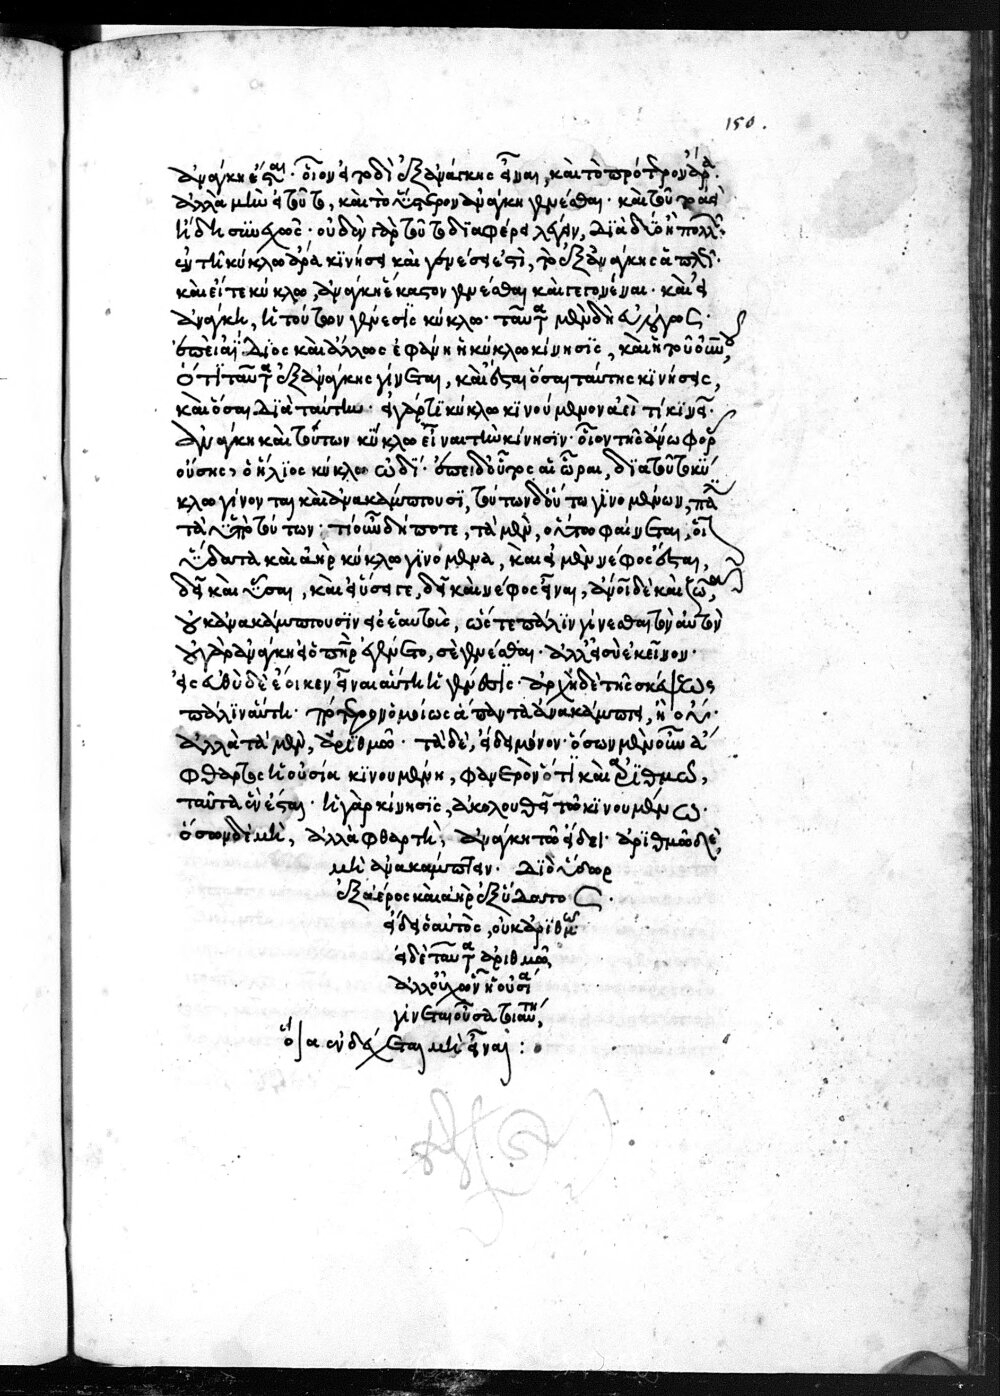 150.
ἀνάγκη ἔσται. οἷον εἰ τοδὶ ἐξ ἀνάγκης εἶναι, καὶ τὸ πρότερον ἄρα.
ἀλλὰ μὴν εἰ τοῦτο, καὶ τὸ ὕστερον ἀνάγκη γενέσθαι. καὶ τοῦτο ἀεὶ
δὴ συνεχῶς. οὐδὲν γὰρ τοῦτο διαφέρει λέγειν, διὰ δύο ἢ πολλῶν.
ἐν τῇ κύκλῳ ἄρα κινήσει καὶ γενέσει ἐστὶ, τὸ ἐξ ἀνάγκης ἁπλῶς.
καὶ εἴτε κύκλῳ, ἀνάγκη ἕκαστον γίνεσθαι καὶ γεγονέναι. καὶ εἰ
ἀνάγκη, ἡ τούτων γένεσις κύκλῳ. ταῦτα μὲν δὴ εὐλόγως.
ἐπεὶ ἀΐδιος καὶ ἄλλως ἐφάνη ἡ κύκλῳ κίνησις, καὶ ἡ τοῦ οὐρανοῦ,
ὅτι ταῦτα ἐξ ἀνάγκης γίνεται, καὶ ἔσται ὅσαι ταύτης κινήσεις,
καὶ ὅσαι διὰ ταύτην. εἰ γὰρ τὸ κύκλῳ κινούμενον ἀεί τι κινεῖ.
ἀνάγκη καὶ τούτων κύκλῳ εἶναι τὴν κίνησιν. οἷον τῆς ἄνω φορᾶς
οὔσης, ὁ ἥλιος κύκλῳ ὡδί. ἐπεὶ δ' οὕτως αἱ ὧραι, διὰ τοῦτο κύ
κλῳ γίνονται καὶ ἀνακάμπτουσι, τούτων δ' οὕτω γινομένων, πάλιν
τὰ ὑπὸ τούτων. τί οὖν δή ποτε, τὰ μὲν, οὕτω φαίνεται, οἷον
ὕδατα καὶ ἀὴρ κύκλῳ γινόμενα, καὶ εἰ μὲν νέφος ἔσται,
δεῖ καὶ ὗσαι, καὶ εἰ ὕσει γε, δεῖ καὶ νέφος εἶναι, ἄνοι δὲ καὶ ζῷα,
οὐκ ἀνακάμπτουσιν εἰς ἑαυτοὺς, ὥστε πάλιν γίνεσθαι τὸν αὐτὸν
οὐ γὰρ ἀνάγκη εἰ ὁ πὴρ ἐγένετο, σὲ γενέσθαι. ἀλλ' εἰ σὺ ἐκεῖνον.
εἰς εὐθὺ δὲ ἔοικεν εἶναι αὕτη ἡ γένεσις. ἀρχὴ δὲ τῆς σκέψεως
πάλιν αὕτη. πότερον ὁμοίως ἅπαντα ἀνακάμπτει, ἢ οὔ.
ἀλλὰ τὰ μὲν, ἀριθμῷ. τὰ δὲ, εἴδει μόνον. ὅσων μὲν οὖν ἄ
φθαρτος ἡ οὐσία κινουμένη, φανερὸν ὅτι καὶ ἀριθμῷ,
ταὐτὰ ἕν ἔσται. ἡ γὰρ κίνησις, ἀκολουθεῖ τῷ κινουμένῳ.
ὅσων δὲ μὴ, ἀλλὰ φθαρτὴ, ἀνάγκη τῷ εἴδει. ἀριθμῷ δὲ,
μὴ ἀνακάμπτειν. διὸ ὕδωρ
ἐξ ἀέρος καὶ ἀὴρ ἐξ ὕδατος.
εἴδει ὁ αὐτὸς, οὐκ ἀριθμῷ.
εἰ δὲ ταῦτα ἀριθμῷ,
ἀλλ' οὐχ ὧν ἡ οὐσία
γίνεται οὖσα τοιαύτη,
οἵα ἐνδέχεται μὴ εἶναι :